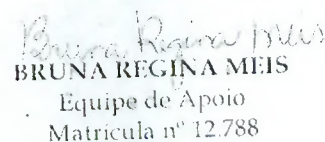 Bruna Regina Meis
BRUNA REGINA MEIS
Equipe de Apoio
Matricula nº 12.788